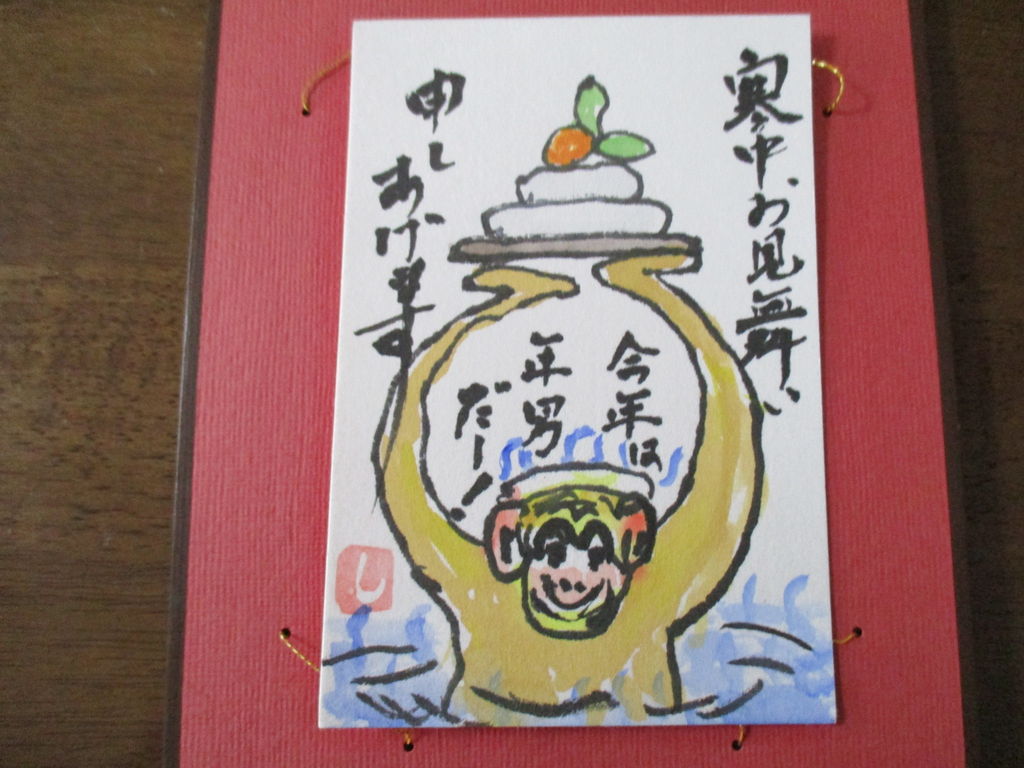 寒中お見舞い
申し
あげます
今年は
年男
だー!
し